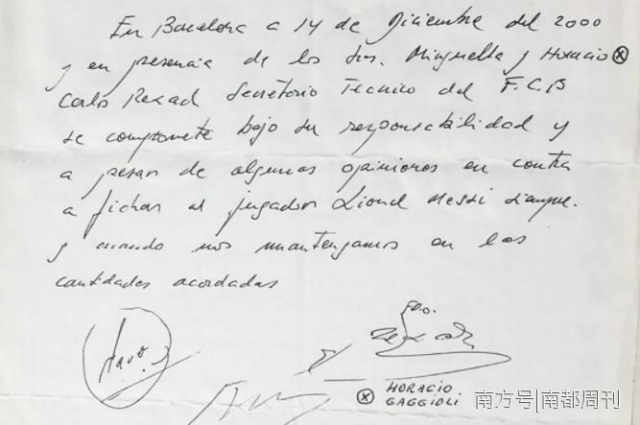 En Barcelona a 14 de Diciembre del 2000
y en presencia de los Srs. Minguella y Horacio ⓧ
Carlos Rexach Secretario Tecnico del F.C.B
se compromete bajo su responsabilidad y
a pesar de algunas opiniones en contra
a fichar al jugador Lionel Messi siempre
y cuando nos mantengamos en las
cantidades acordadas
Fdo.
Rexach
ⓧ HORACIO
GAGGIOLI
南方号|南都周刊